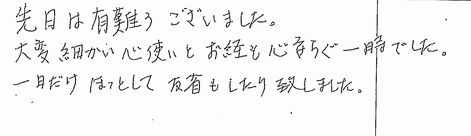 先日は有難うございました。
大変細かい心使いとお経も心安らぐ一時でした。
一日だけほっとして反省もしたり致しました。